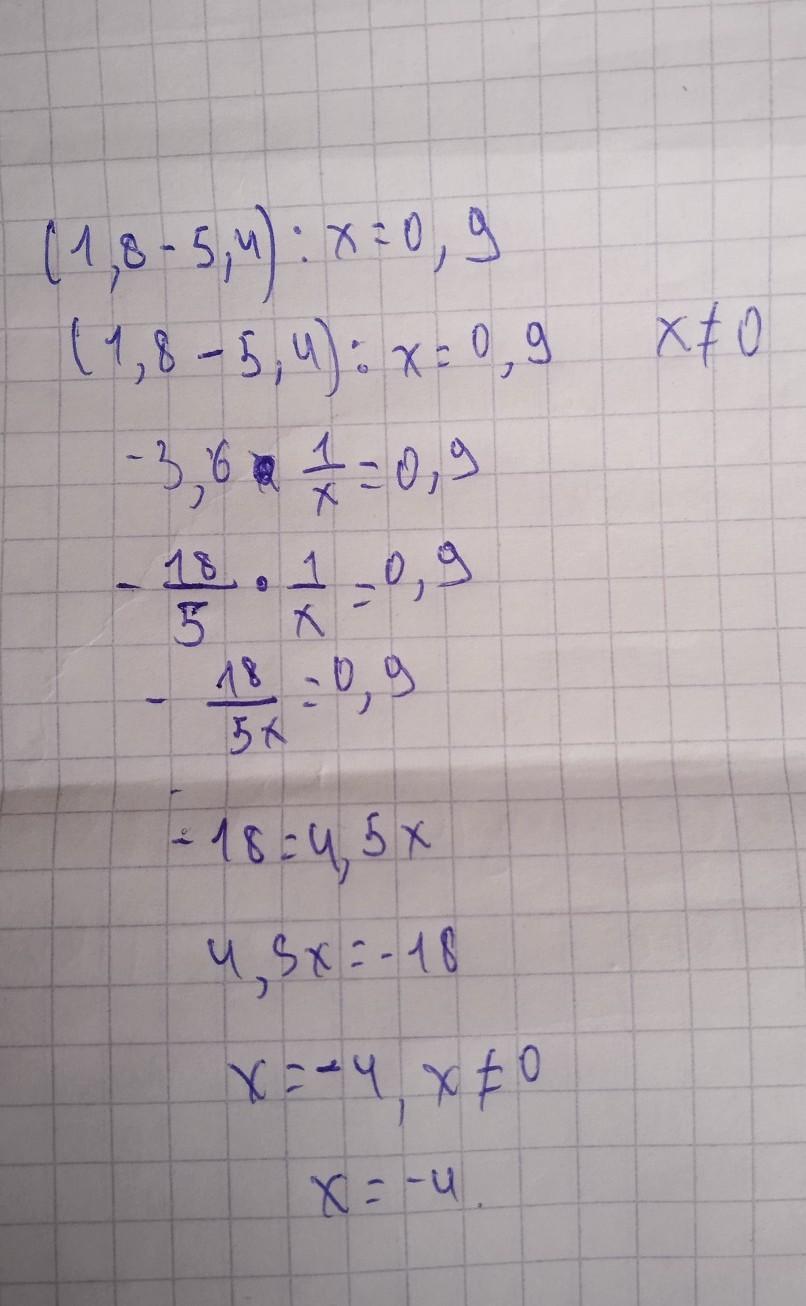 (1,8 - 5,4) : x = 0,9
(1,8 - 5,4) : x = 0,9 x ≠ 0
-3,6 • 1/x = 0,9
- 18/5 • 1/x = 0,9
- 18/5x = 0,9
- 18 = 4,5x
4,5x = -18
x = -4, x ≠ 0
x = -4.